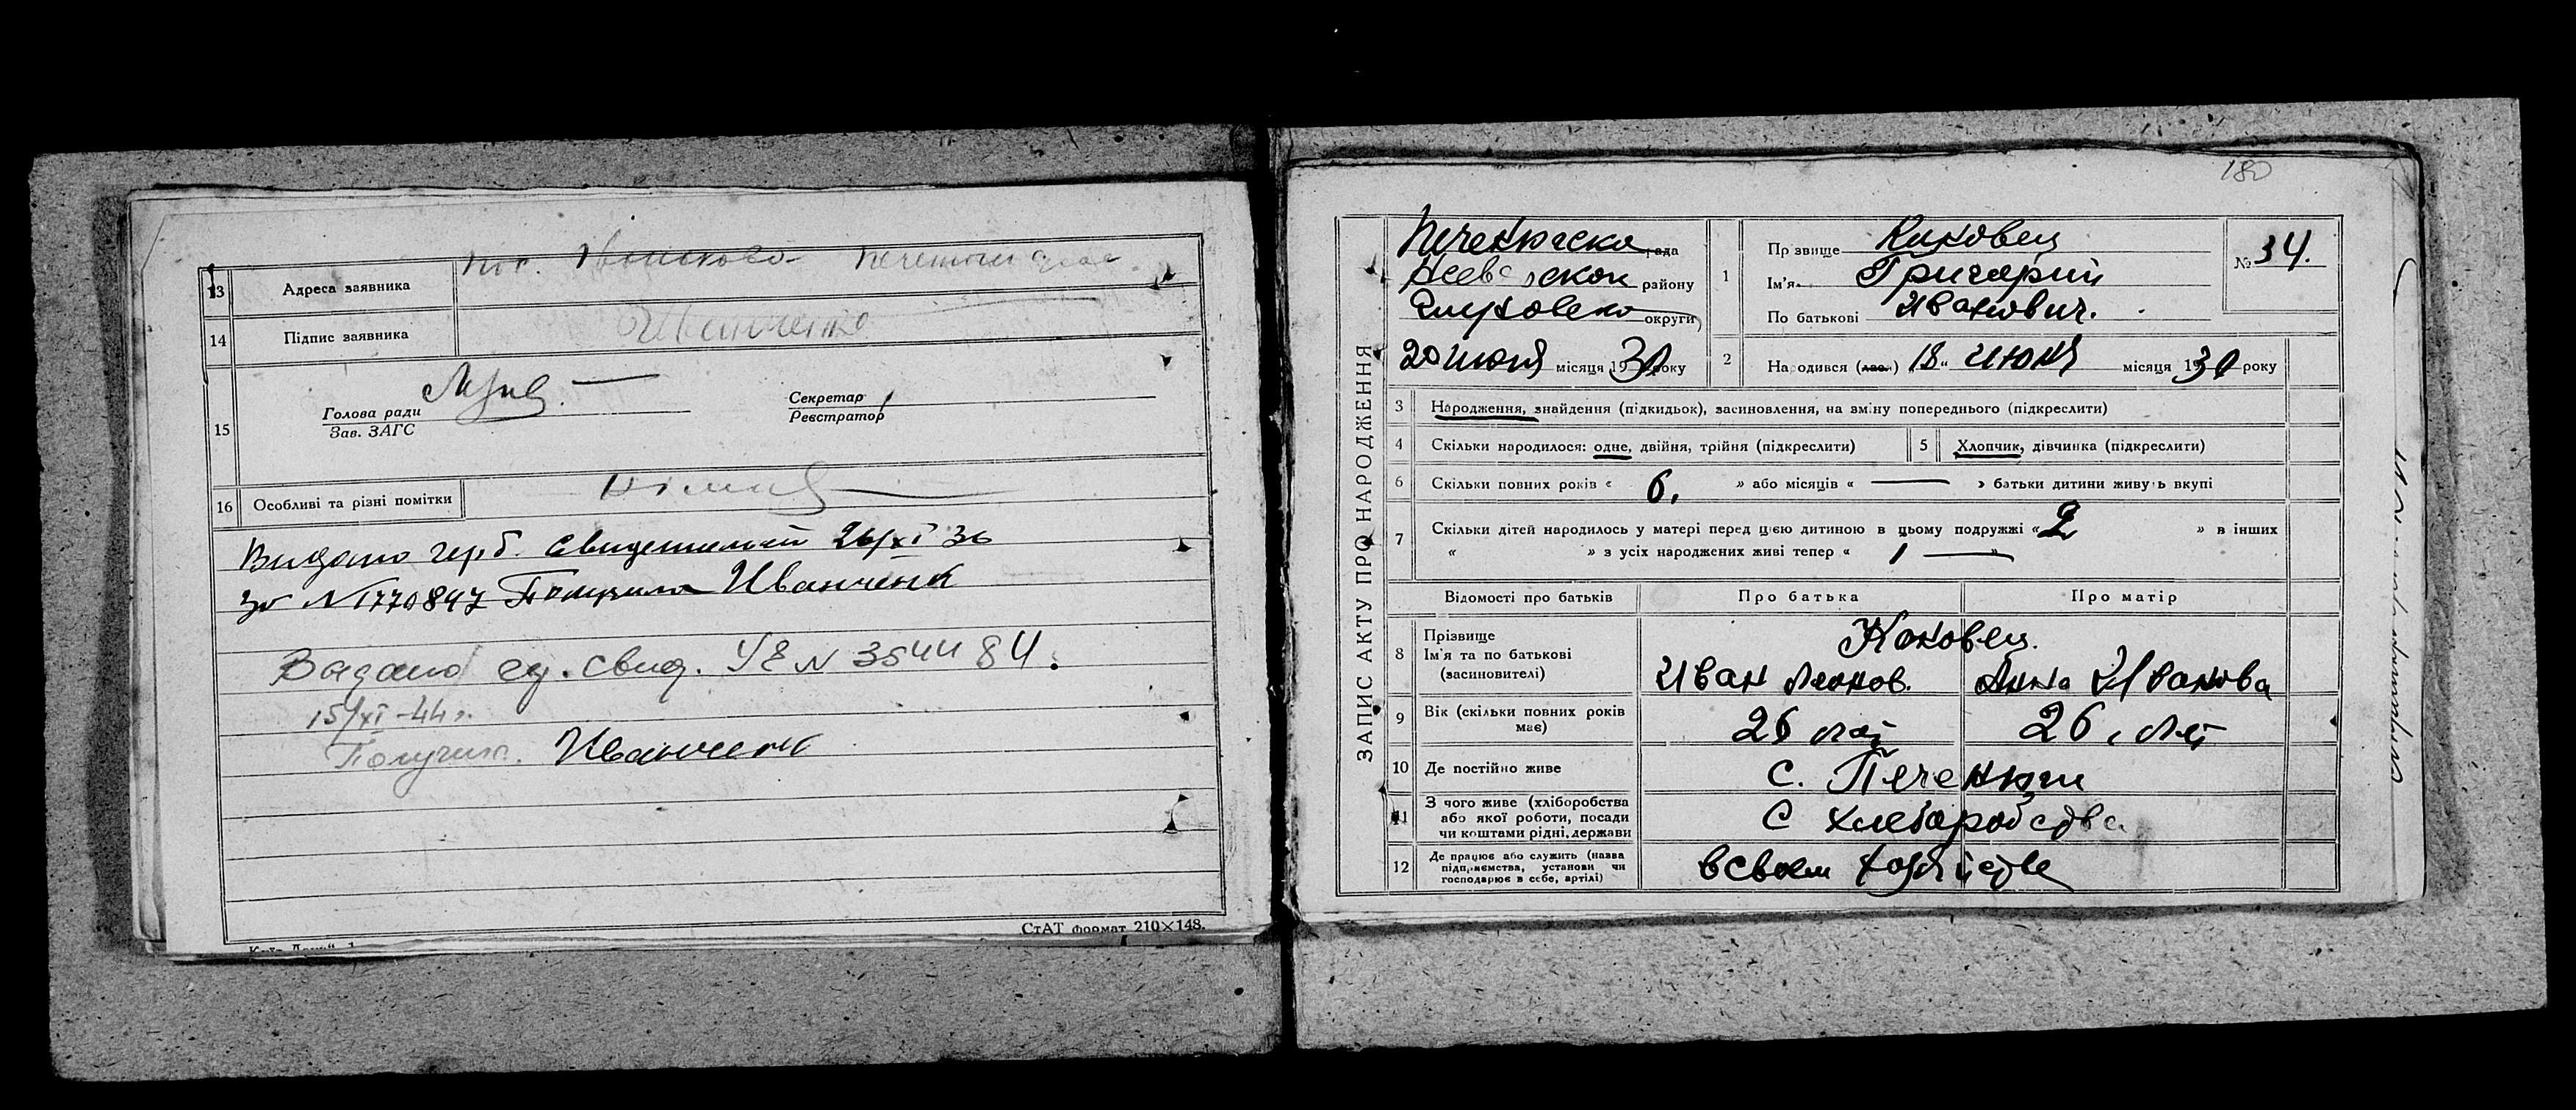 13 Адреса заявника
14 Підпис заявника Иванченко
15 Голова ради
Зав. ЗАГС
Секретар
Реєстратор
16 Особливі та різні помітки
Видано герб. 26/XI 36
за №1770847 Получила Иванченк
свид. УЕ N 354484.
15/XI-44 г.
Получила. Иванченк
СтАТ формат 210×148.
180
ЗАПИС АКТУ ПРО НАРОДЖЕННЯ
рада
району
округи
20 июня місяця 1930 року
1 Прізвище
Ім'я Григорий
По батькові Иванович.
№ 34.
2 Народився (лас.) "18" июня місяця 1930 року
3 Народження, знайдення (підкидьок), засиновлення, на зміну попереднього (підкреслити)
4 Скільки народилося: одне, двійня, трійня (підкреслити)
5 Хлопчик, дівчинка (підкреслити)
6 Скільки повних років « 6. » або місяців « — » батьки дитини живуть вкупі
7 Скільки дітей народилось у матері перед цією дитиною в цьому подружжі « 2 » в інших
« » з усіх народжених живі тепер « 1 — »
Відомості про батьків Про батька Про матір
8 Прізвище
Ім'я та по батькові
(засиновителі)
Коновец.
Иван Анна Иванова
9 Вік (скільки повних років має) 26 лет 26, лет
10 Де постійно живе с. Печенюги
11 З чого живе (хліборобства
або якої роботи, посади
чи коштами рідні, держави
С хлеборобства
12 Де працює або служить (назва
підприємства, установи чи
господарює в себе, артілі)
в своем хозяйстве